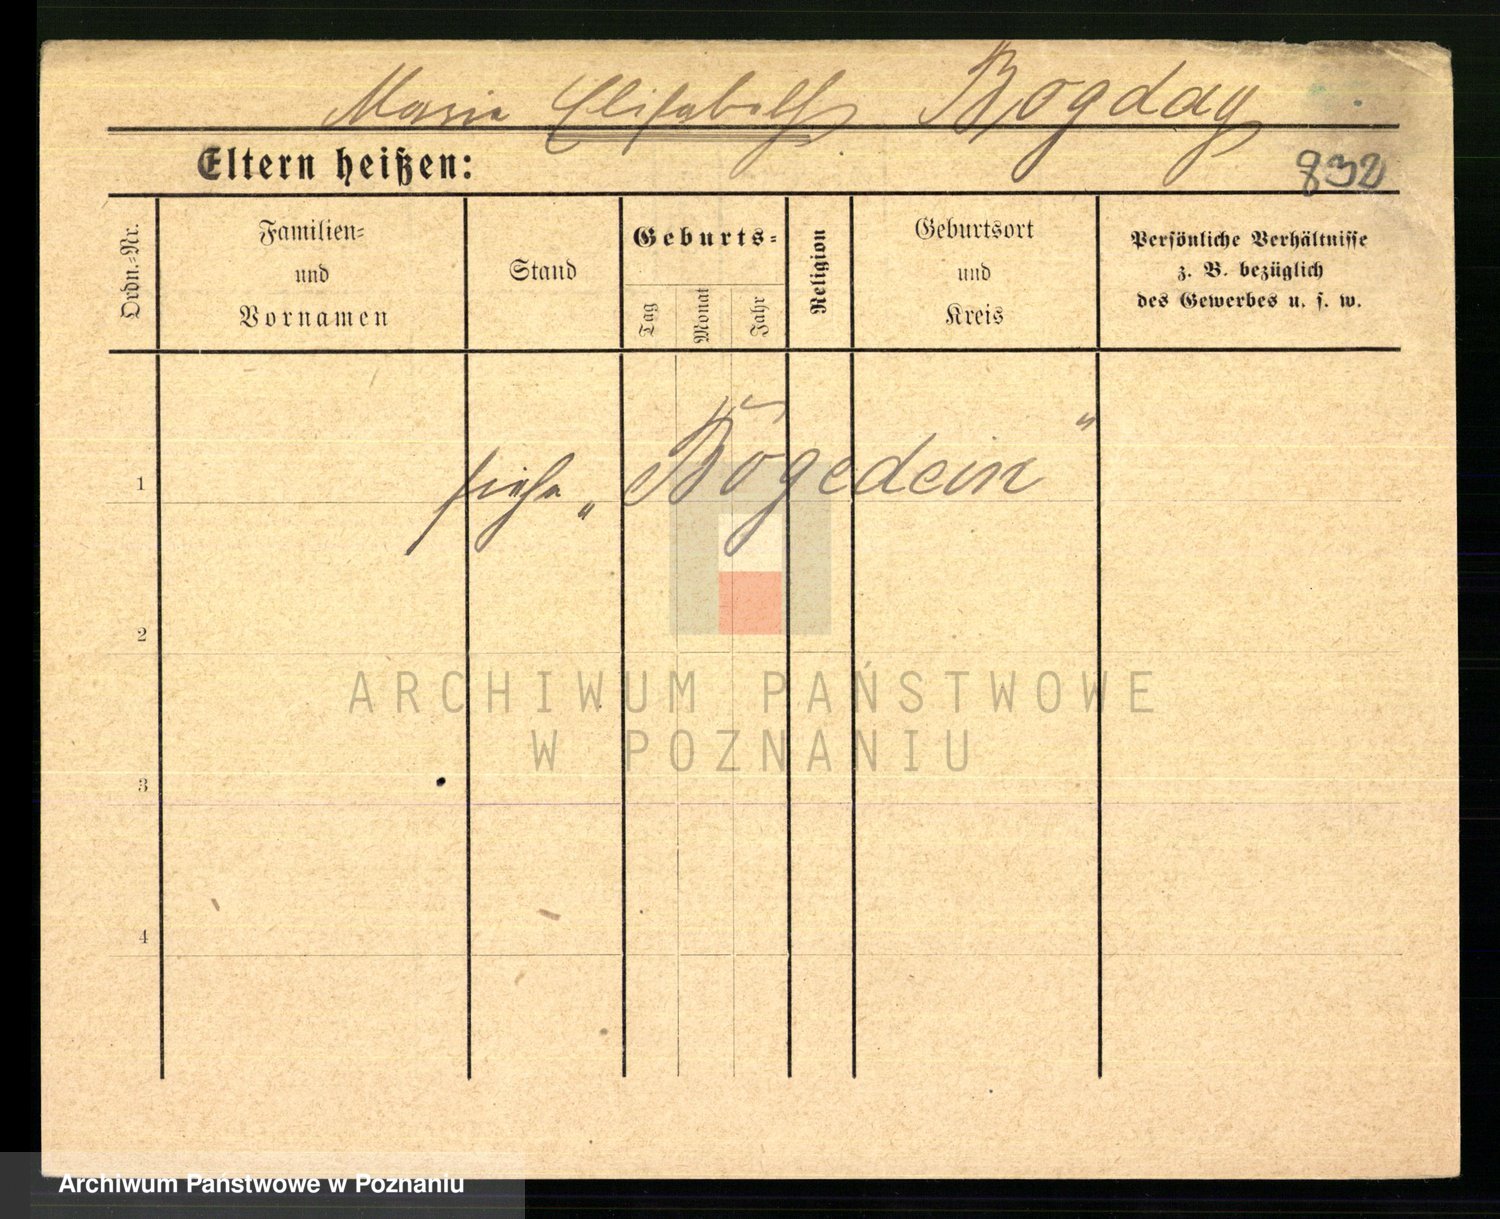 Marie Elisabeth Bogday
Eltern heißen:
832
Ordn.-Nr.
Familien-
und
Vornamen
Stand
Geburts-
Tag
Monat
Jahr
Religion
Geburtsort
und
Kreis
Persönliche Verhältnisse
z. B. bezüglich
des Gewerbes u. s. w.
1
siehe „Bögedein"
2
3
4
ARCHIWUM PAŃSTWOWE
W POZNANIU
Archiwum Państwowe w Poznaniu